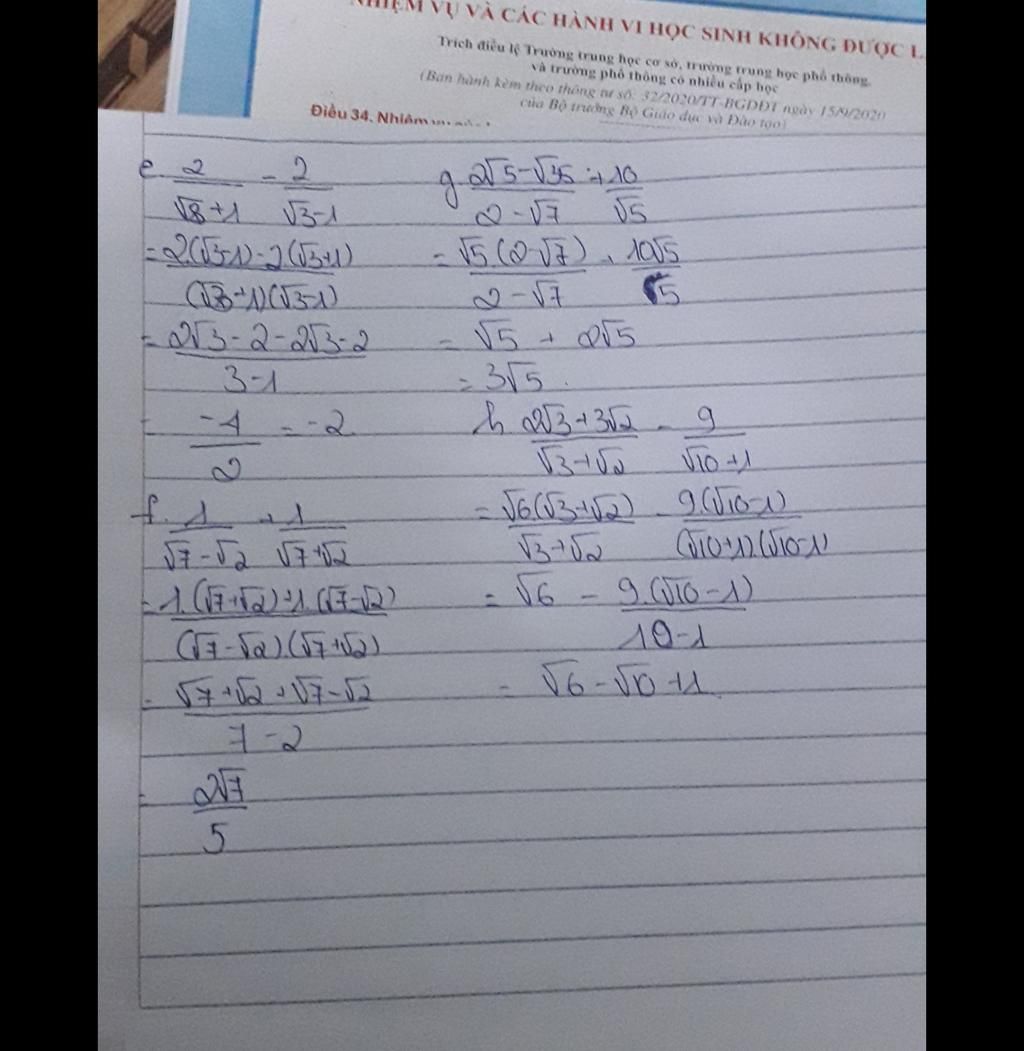 NHIỆM VỤ VÀ CÁC HÀNH VI HỌC SINH KHÔNG ĐƯỢC L
Trích điều lệ Trường trung học cơ sở, trường trung học phổ thông,
và trường phổ thông có nhiều cấp học
(Ban hành kèm theo thông tư số: 32/2020/TT-BGDĐT ngày 15/9/2020
của Bộ trưởng Bộ Giáo dục và Đào tạo)
Điều 34. Nhiệm
e. 2/(√3+1) - 2/(√3-1)
= (2(√3-1)-2(√3+1))/((√3+1)(√3-1))
= (2√3-2-2√3-2)/(3-1)
= -4/2 = -2
f. 1/(√7-√2) + 1/(√7+√2)
= (1.(√7+√2)+1.(√7-√2))/((√7-√2).(√7+√2))
= (√7+√2+√7-√2)/(7-2)
= 2√7/5
g. (2√5-√35)/(2-√7) + 10/√5
= √5.(2-√7)/(2-√7) + 10√5/5
= √5 + 2√5
= 3√5.
h. (2√3+3√2)/(√3+√2) - 9/(√10+1)
= √6(√3+√2)/(√3+√2) - 9.(√10-1)/((√10+1).(√10-1)
= √6 - 9.(√10-1)/(10-1)
= √6-√10+1